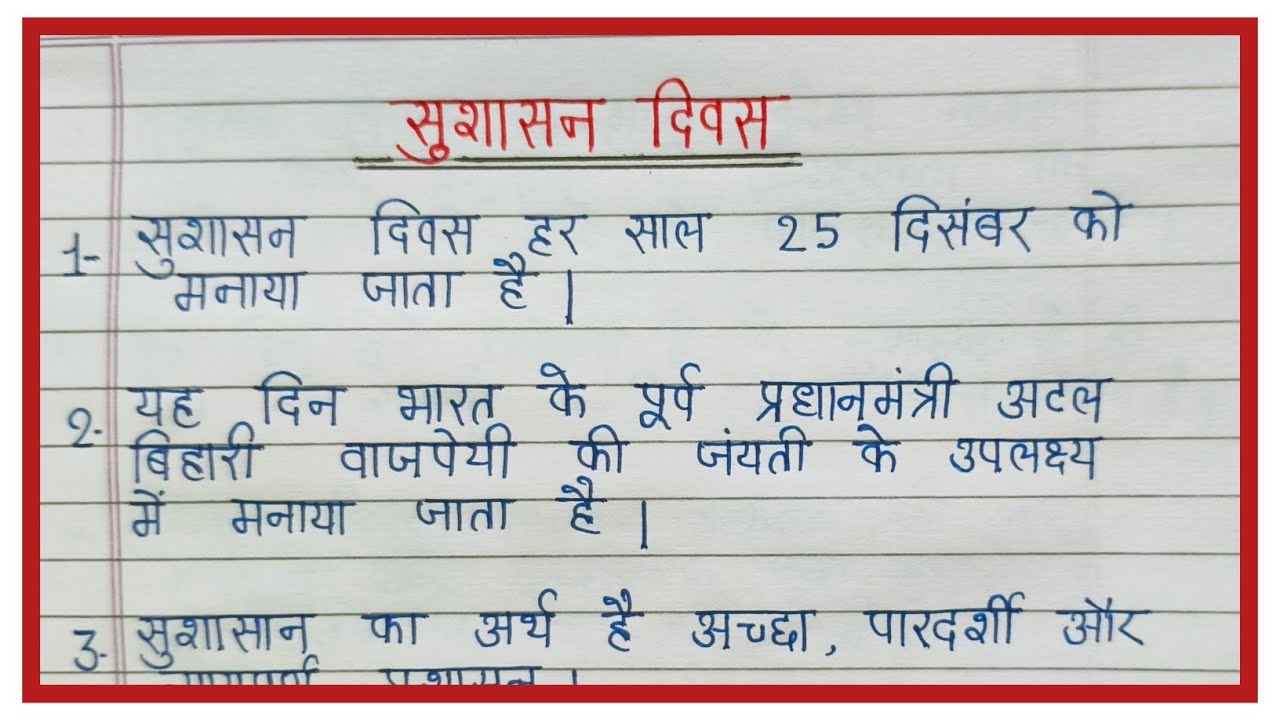 सुशासन दिवस
1- सुशासन दिवस हर साल 25 दिसंबर को
मनाया जाता है।
2- यह दिन भारत के पूर्व प्रधानमंत्री अटल
बिहारी वाजपेयी की जंयती के उपलक्ष्य
में मनाया जाता है।
3- सुशासान का अर्थ है अच्छा, पारदर्शी और